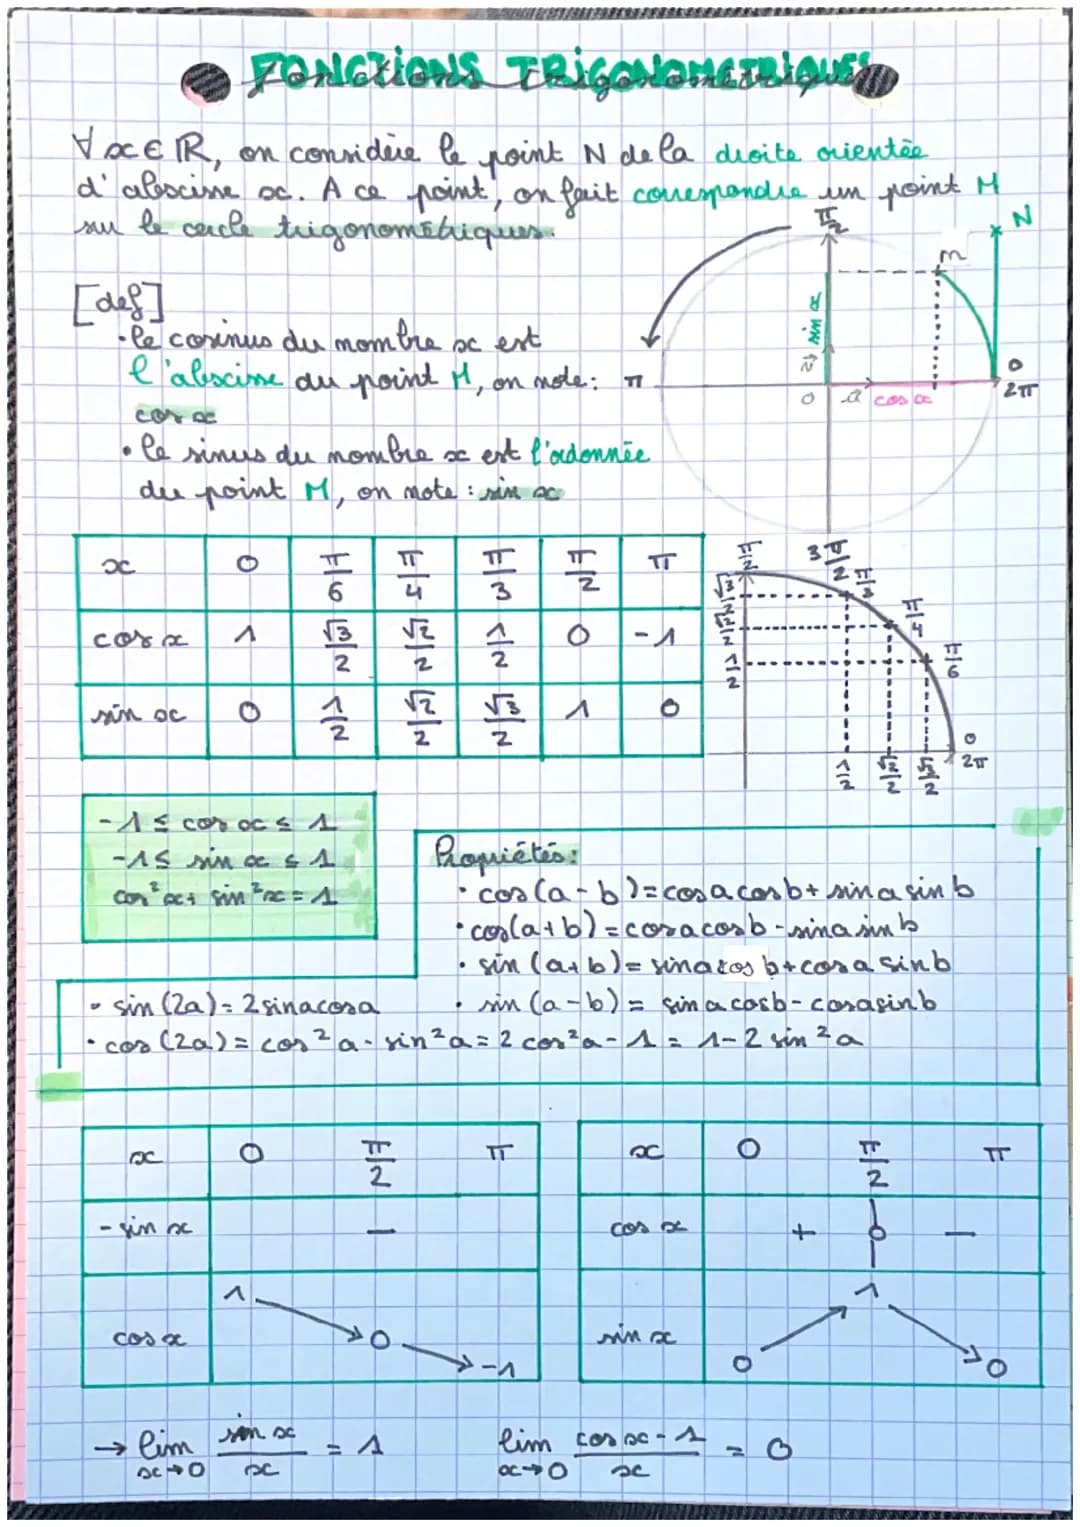 Fonctions Trigonométriques
∀ x ∈ ℝ, on considère le point N de la droite orientée
d'abscisse x. A ce point, on fait correspondre un point M
sur le cercle trigonométriques.
[def]
• le cosinus du nombre x est
l'abscisse du point M, on note :
cos x
• le sinus du nombre x est l'ordonnée
du point M, on note : sin x
π/2
N
m
sin x
π
v⃗
0
u⃗
cos x
0
2π
3π/2
x | 0 | π/6 | π/4 | π/3 | π/2 | π
cos x | 1 | √3/2 | √2/2 | 1/2 | 0 | -1
sin x | 0 | 1/2 | √2/2 | √3/2 | 1 | 0
π/2
π/3
π/4
π/6
0
2π
√3/2
√2/2
1/2
1/2
√2/2
√3/2
-1 ≤ cos x ≤ 1
-1 ≤ sin x ≤ 1
cos²x + sin²x = 1
Propriétés :
• cos(a-b) = cos a cos b + sin a sin b
• cos(a+b) = cos a cos b - sin a sin b
• sin (a+b) = sin a cos b + cos a sin b
• sin (a-b) = sin a cos b - cos a sin b
• sin (2a) = 2 sin a cos a
• cos (2a) = cos²a - sin²a = 2 cos²a - 1 = 1 - 2 sin²a
x | 0 | π/2 | π
- sin x | −
cos x | 1 | 0 | -1
x | 0 | π/2 | π
cos x | + | 0 | −
sin x | 0 | 1 | 0
→ lim x→0 sin x / x = 1
lim x→0 cos x - 1 / x = 0